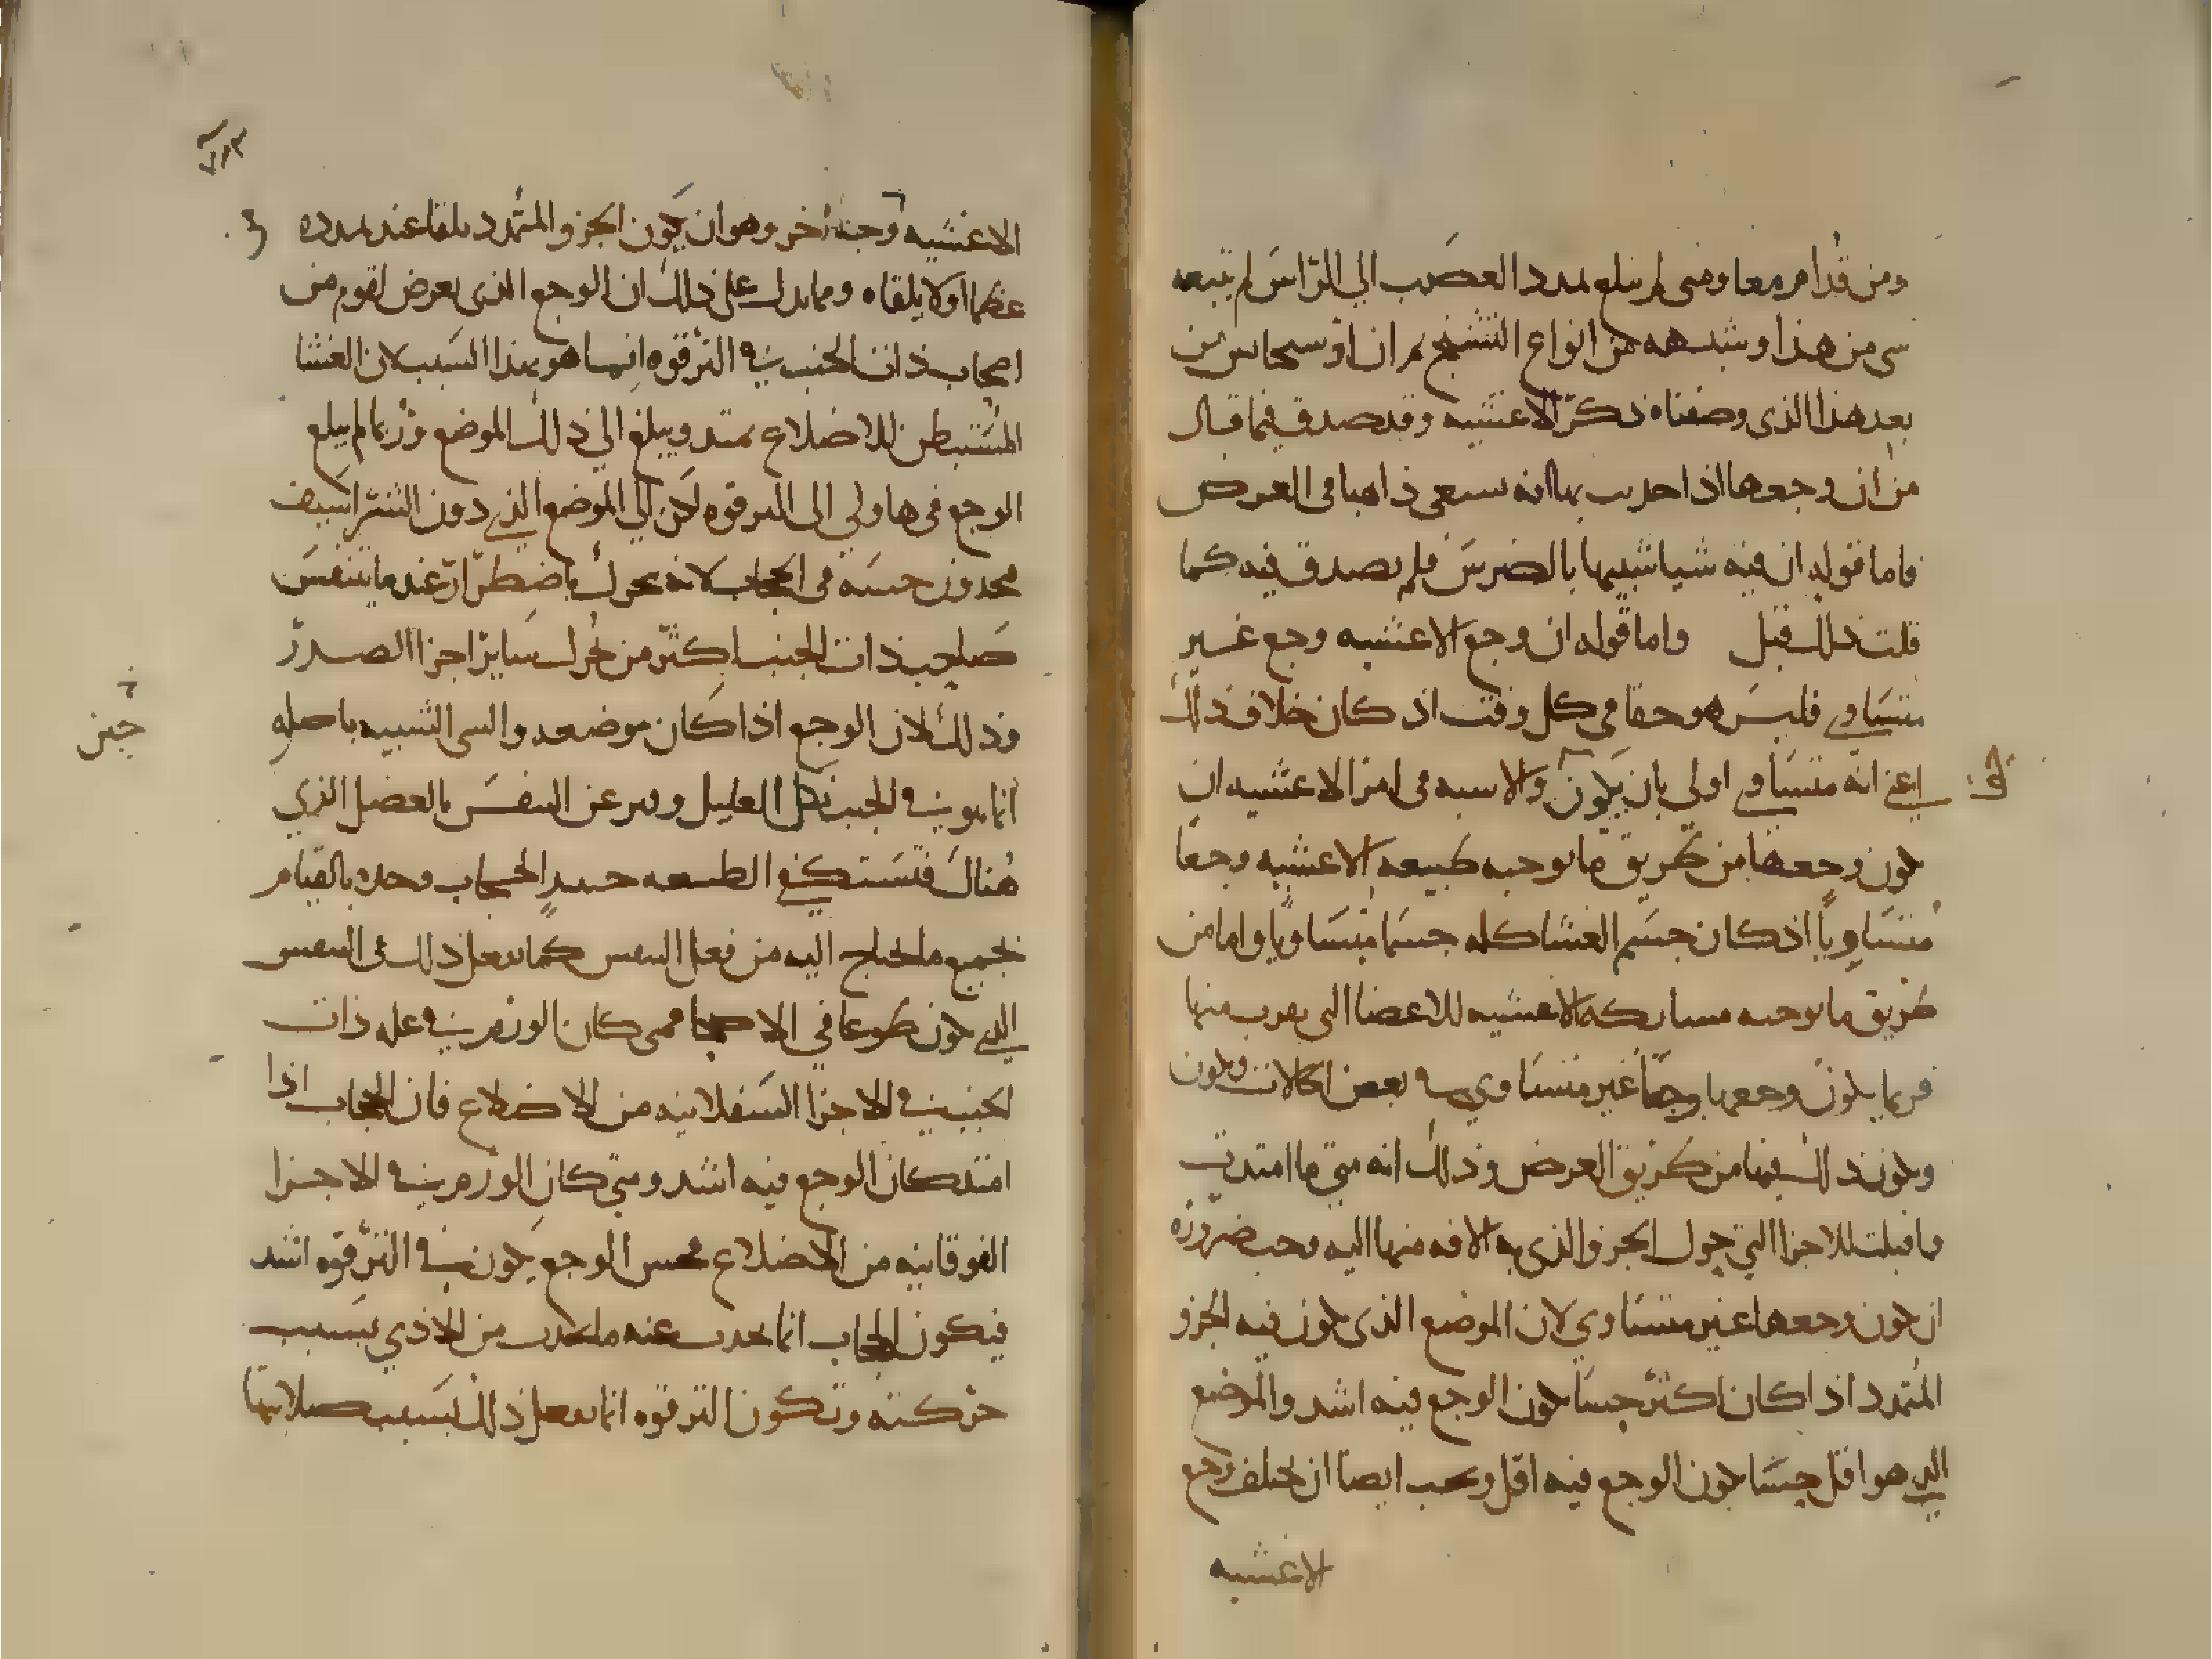 ومن قدام معا ومتى لم يبلغ تمدد العصب الي الراس لم يتبعه
شى من هذا وشبهه من انواع التشنج ثم ان ارسيجانس من
بعد هذا الذى وصفناه ذكر الاغشيه وقد صدق فيما قال
من ان وجعها اذا حدث بها انه يسعى ذاهبا فى العرض
فاما قوله ان فيه شيا شبيها بالضرس فلم يصدق فيه كما
قلت ذلك قبل واما قوله ان وجع الاغشيه وجع غير
متساوي فليس هو حقا فى كل وقت اذ كان خلاف ذلك
اعني انه متساوي اولي بان يكون والاشبه فى امر الاغشيه ان
يكون وجعها من طريق ما توجبه طبيعه الاغشيه وجعا
متساويا اذ كان جسم الغشا كله جسما متساويا واما من
طريق ما توجبه مشاركه الاغشيه للاعضا التى تقرب منها
فربما يكون وجعها وجعا غير متساوي في بعض الحالات ويكون
ويكون ذلك فيها من طريق العرض وذلك انه متى ما امتدت
ما قبلت للاجزا التي حول الجزو الذى به الافه منها اليه وجب ضروره
ان يكون وجعها غير متساوي لان الموضع الذى يكون فيه الجزو
المتمدد اذا كان اكثر حسا يكون الوجع فيه اشد والموضع
الذي هو اقل حسا يكون الوجع فيه اقل ويجب ايضا ان يختلف وجع
الاغشيه
الاغشيه وجه اخر وهو ان يكون الجزو المتمدد يلقا عند تمدده
عظما او لا يلقاه ومما يدل على ذلك ان الوجع الذى يعرض لقوم من
اصحاب ذات الجنب في الترقوه انما هو بهذا السبب لان الغشا
المستبطن للاضلاع يمتد ويبلغ الي ذلك الموضع وربما لم يبلغ
الوجع فى هاولي الى الترقوه لكن الي الموضع الذي دون الشراسيف
فيجدون حسه فى الحجاب لانه يتحرك باضطرار عند ما يتنفس
صاحب ذات الجنب اكثر من تحرك ساير اجزا الصدر
وذلك لان الوجع اذا كان موضعه والشى الشبيه باصله
انما هو في الجنب العليل وفتر عن التنفس بالعضل الذي
هناك فتستكفي الطبيعه حينيذ الحجاب وحده بالقيام
بجميع ما تحتاج اليه من فعل التنفس كما تفعل ذلك فى التنفس
الذي يكون طوعا في الاصحا فمتى كان الورم في عله ذات
الجنب في الاجزا السفلانيه من الاضلاع فان الحجاب اذا
امتد كان الوجع فيه اشد ومتي كان الورم في الاجزا
الفوقانيه من الاضلاع فحس الوجع يكون في الترقوه اشد
فيكون الحجاب انما يحدث عنه ما يحدث من الاذي بسبب
حركته وتكون الترقوه انما تفعل ذلك بسبب صلابتها